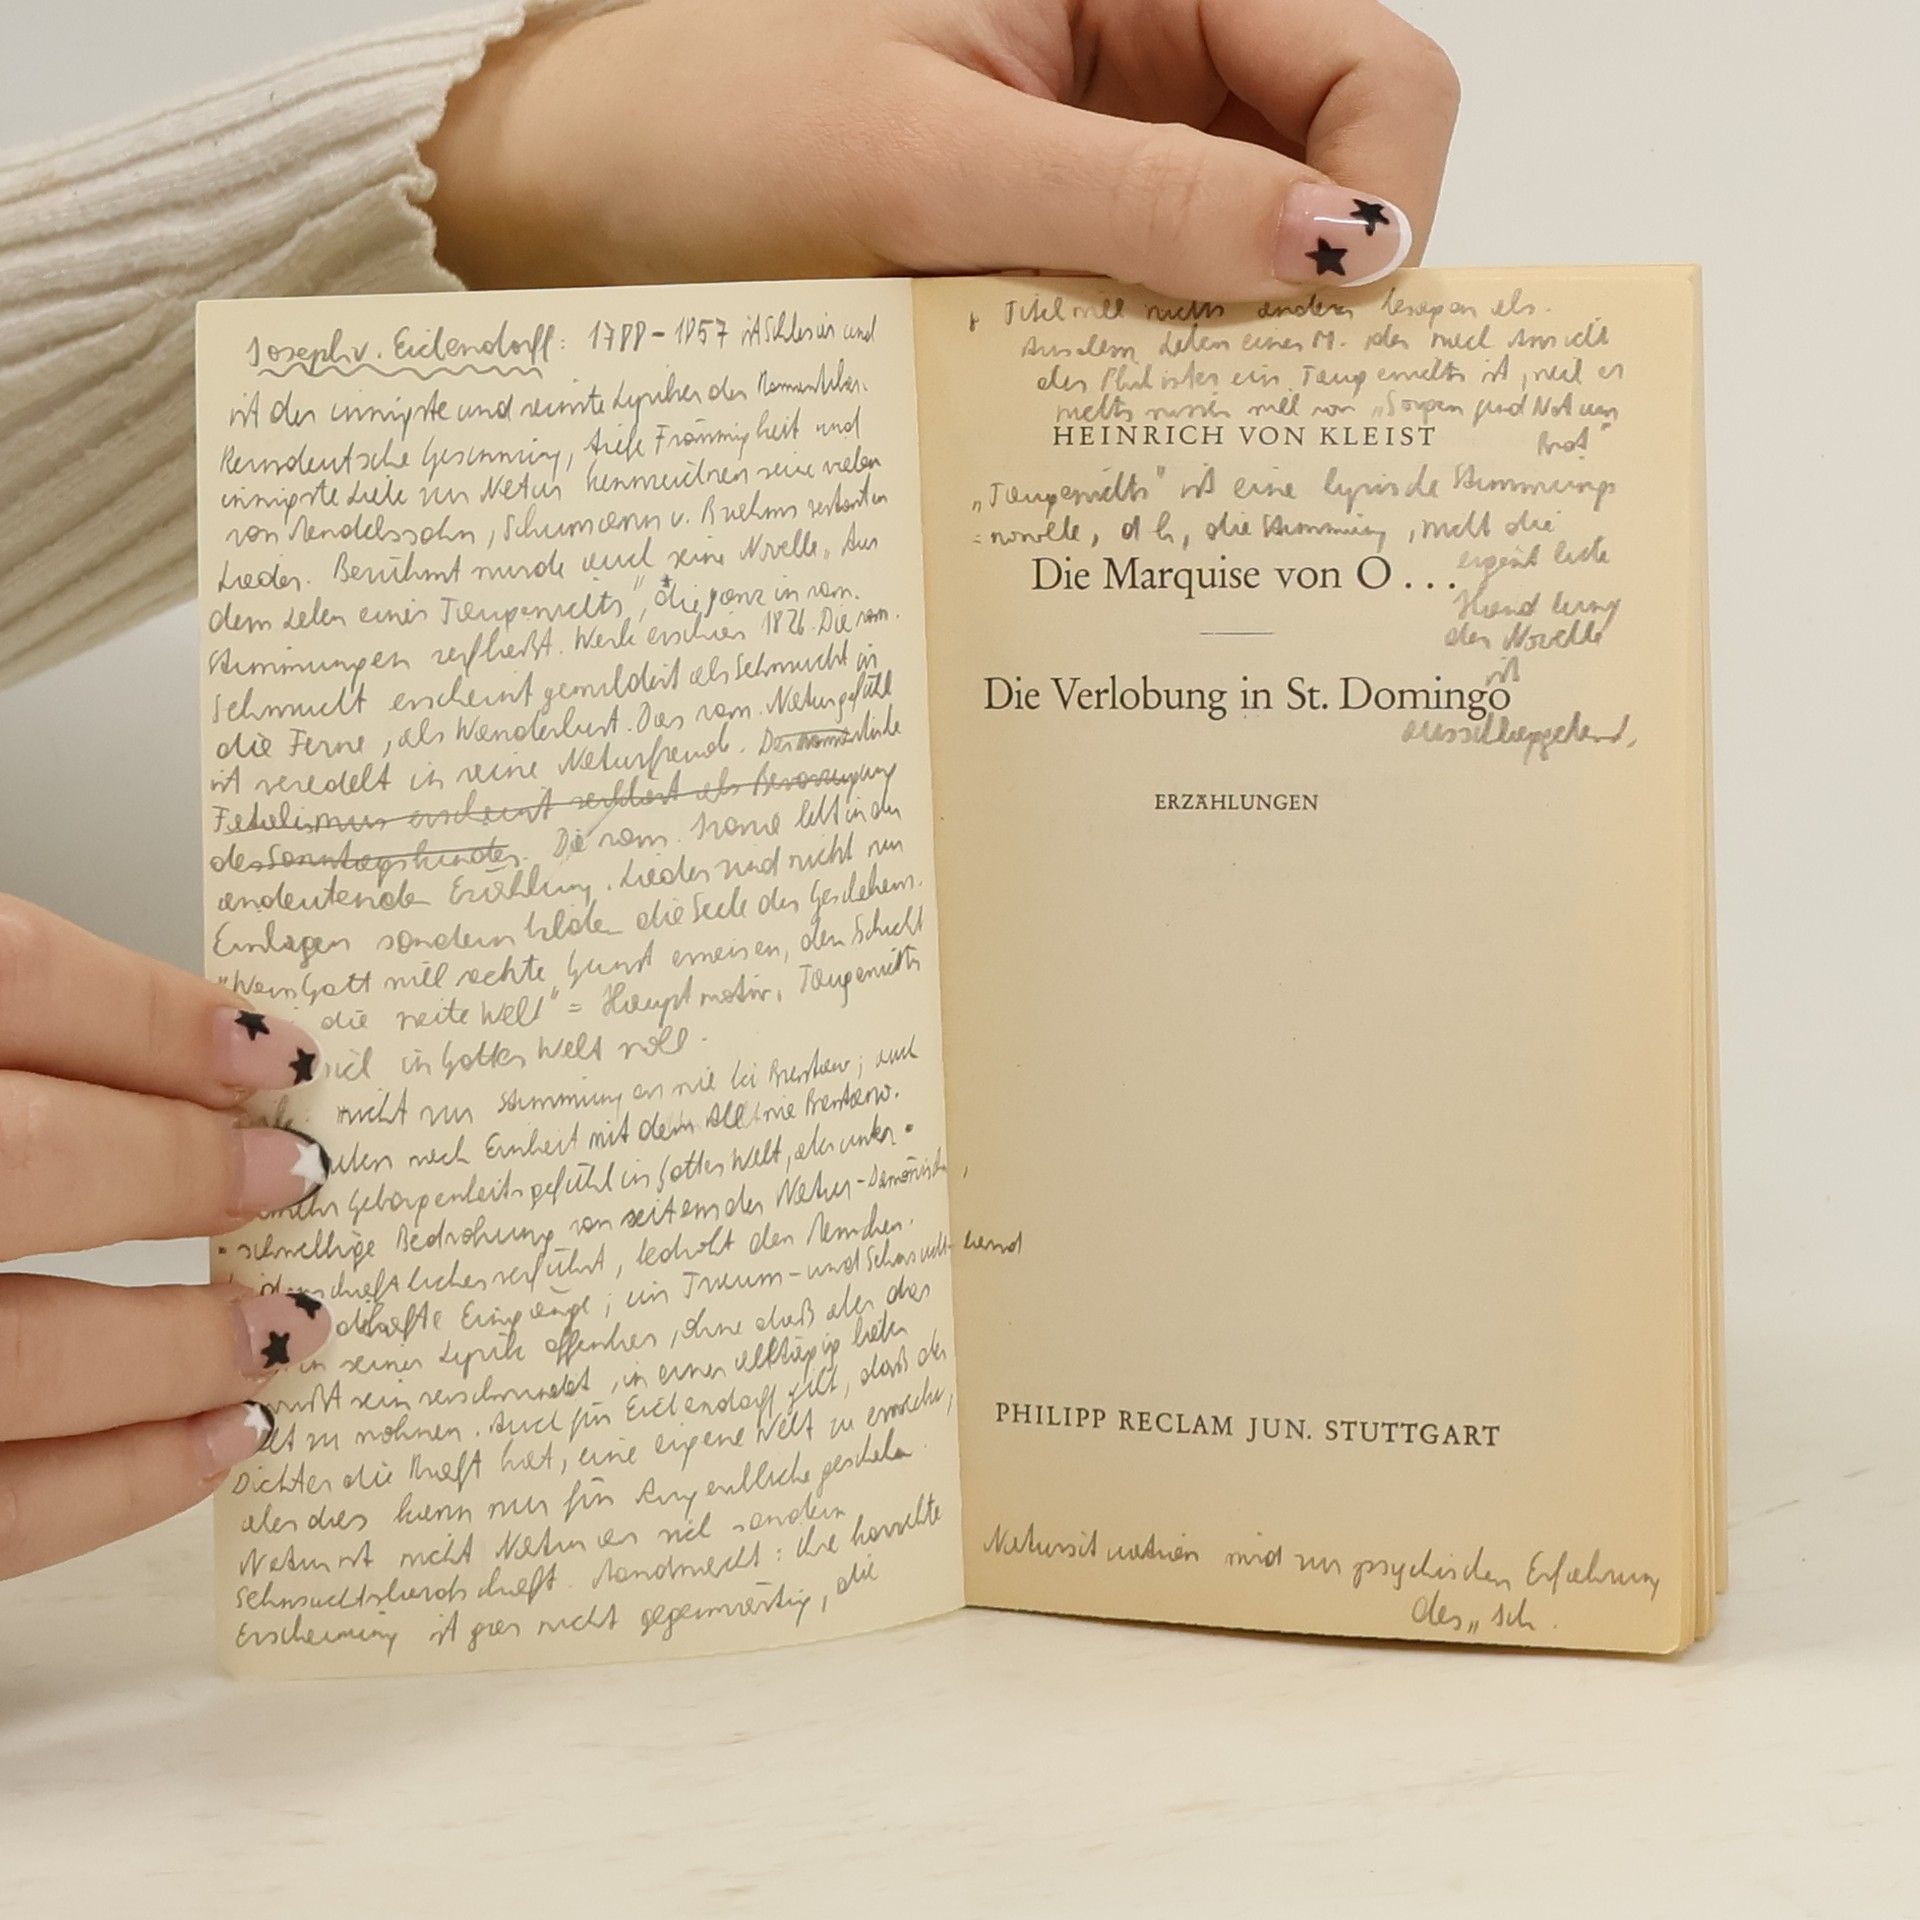 Joseph v. Eichendorff: 1788 – 1857 ist Schlesier und
ist der innigste und reinste Lyriker der Romantiker.
Kerndeutsche Gesinnung, tiefe Frömmigkeit und
innigste Liebe zur Natur kennzeichnen seine vielen
von Mendelssohn, Schumann u. Brahms vertonten
Lieder. Berühmt wurde auch seine Novelle „Aus
dem Leben eines Taugenichts", die ganz in rom.
Stimmungen zerfließt. Werk erschien 1826. Die rom.
Sehnsucht erscheint gemildert als Sehnsucht in
die Ferne, als Wanderlust. Das rom. Naturgefühl
ist veredelt in reine Naturfreude. Der romantische
Fatalismus erscheint verklärt als Bevorzugung
des Sonntagskindes. Die rom. Ironie lebt in der
andeutenden Erzählung. Lieder sind nicht nur
Einlagen sondern bilden die Seele des Geschehens.
„Wem Gott will rechte Gunst erweisen, den schickt
die weite Welt" = Hauptmotiv. Taugenichts
in Gottes Welt wohl.
nicht nur Stimmungen wie bei Brentano; auch
nach Einheit mit dem All wie Brentano.
Geborgenheitsgefühl in Gottes Welt, aber unter=
=schwellige Bedrohung von seiten der Natur-Dämonischen,
verführt, bedroht den Menschen.
Eingänge; ein Traum- und Sehnsucht- land
in seiner Lyrik offenbar, ohne daß aber das
sein verschwindet, in einer alltäglichen
zu wohnen. Auch für Eichendorff gilt, daß der
Dichter die Kraft hat, eine eigene Welt zu erwecken,
aber dies kann nur für Augenblicke geschehen.
Natur ist nicht Natur an sich sondern
Sehnsuchtslandschaft. Mondnacht: Ihre konkrete
Erscheinung ist gar nicht gegenwärtig, die
Titel will nichts anderes besagen als:
Aus dem Leben eines M. der nach Ansicht
der Philister ein Taugenichts ist, weil er
nichts wissen will von „Sorgen und Not um
Brot"
HEINRICH VON KLEIST
„Taugenichts" ist eine lyrische Stimmungs
=novelle, d h, die Stimmung, nicht die
Die Marquise von O . . .
Handlung
der Novelle
ist
Die Verlobung in St. Domingo
ausschlaggebend,
ERZÄHLUNGEN
PHILIPP RECLAM JUN. STUTTGART
Natursituation wird zur psychischen Erfahrung
des „Ich.